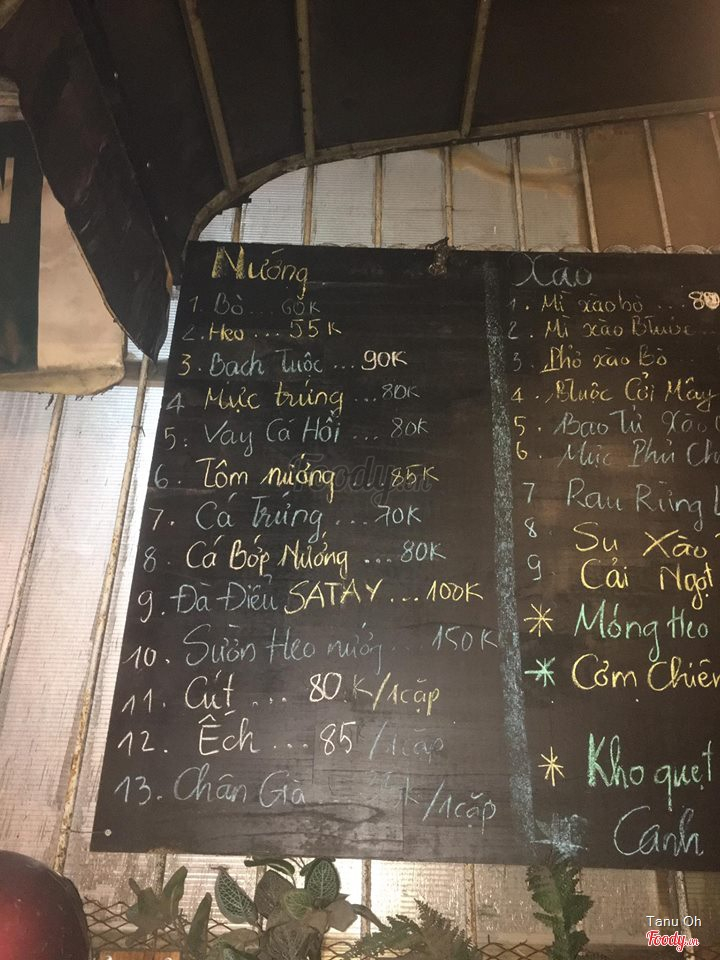 Nướng
1. Bò ... 60K
2. Heo ... 55K
3. Bạch Tuộc ... 90K
4 Mực trứng ... 80K
5. Vay Cá Hồi ... 80K
6. Tôm nướng ... 85K
7. Cá Trứng ... 70K
8. Cá Bớp Nướng ... 80K
9. Đà Điểu SATAY ... 100K
10. Sườn Heo nướng ... 150K
11. Cút ... 80K/1cặp
12. Ếch ... 85 /1cặp
13. Chân Gà K/1cặp
Xào
1. Mì xào bò ... 80
2. Mì xào
3. Phở xào Bò
4.
5. Bao Tử Xào
6. Mực Phủ
7 Rau Rừng
8 Su Xào
9. Cải Ngọt
* Móng Heo
* Cơm Chiên
* Kho quẹt
Canh
Foody.vn
Tanu Oh
Foody.vn